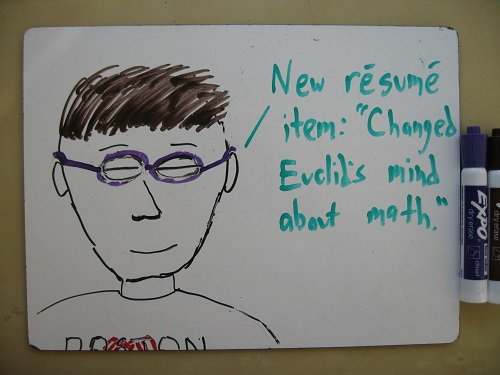 New résumé
item: "Changed
Euclid's mind
about math."
EXPO
dry erase